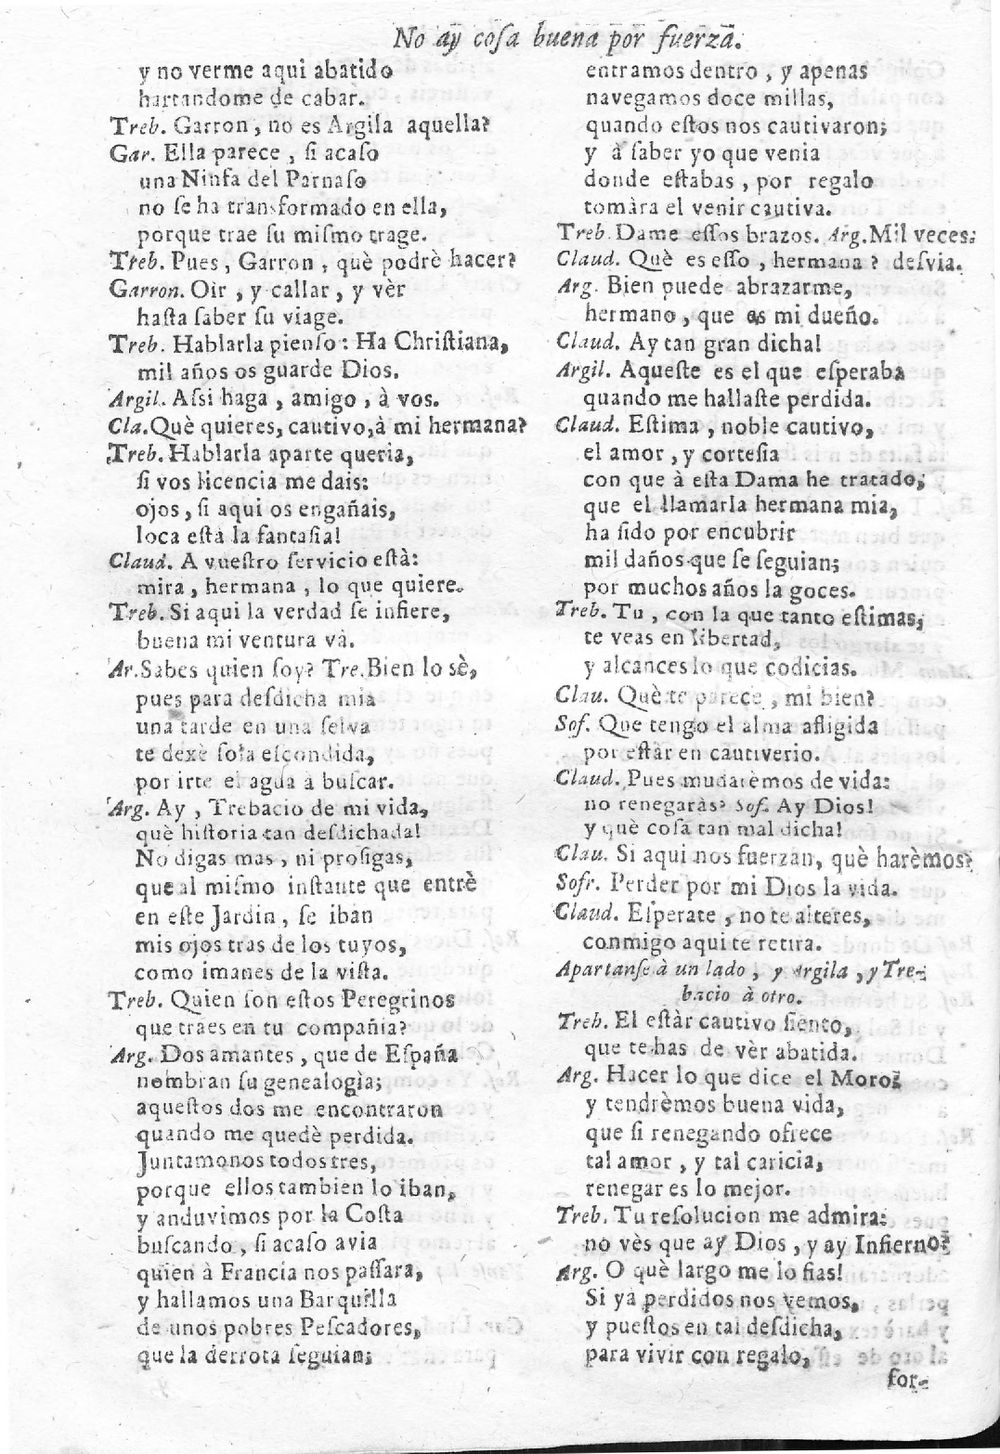 No ay cosa buena por fuerza.
y no verme aqui abatido
hartandome de cabar.
Treb. Garron, no es Argila aquella?
Gar. Ella parece, si acaso
una Ninfa del Parnaso
no se ha transformado en ella,
porque trae su mismo trage.
Treb. Pues, Garron, què podrè hacer?
Garron. Oir, y callar, y vèr
hasta saber su viage.
Treb. Hablarla pienso: Ha Christiana,
mil años os guarde Dios.
Argil. Assi haga, amigo, à vos.
Cla. Què quieres, cautivo, à mi hermana?
Treb. Hablarla aparte queria,
si vos licencia me dais:
ojos, si aqui os engañais,
loca està la fantasia!
Claud. A vuestro servicio està:
mira, hermana, lo que quiere.
Treb. Si aqui la verdad se infiere,
buena mi ventura và.
Ar. Sabes quien soy? Tre. Bien lo sè,
pues para desdicha mia
una tarde en una selva
te dexè sola escondida,
por irte el agua à buscar.
Arg. Ay, Trebacio de mi vida,
què historia tan desdichada!
No digas mas, ni prosigas,
que al mismo instante que entrè
en este Jardin, se iban
mis ojos tras de los tuyos,
como imanes de la vista.
Treb. Quien son estos Peregrinos
que traes en tu compañia?
Arg. Dos amantes, que de España
nombran su genealogìa;
aquestos dos me encontraron
quando me quedè perdida.
Juntamonos todos tres,
porque ellos tambien lo iban,
y anduvimos por la Costa
buscando, si acaso avia
quien à Francia nos passara,
y hallamos una Barquilla
de unos pobres Pescadores,
que la derrota seguian;
entramos dentro, y apenas
navegamos doce millas,
quando estos nos cautivaron;
y à saber yo que venia
donde estabas, por regalo
tomàra el venir cautiva.
Treb. Dame essos brazos. Arg. Mil veces.
Claud. Què es esso, hermana? desvia.
Arg. Bien puede abrazarme,
hermano, que es mi dueño.
Claud. Ay tan gran dicha!
Argil. Aqueste es el que esperaba
quando me hallaste perdida.
Claud. Estima, noble cautivo,
el amor, y cortesia
con que à esta Dama he tratado,
que el llamarla hermana mia,
ha sido por encubrir
mil daños que se seguian;
por muchos años la goces.
Treb. Tu, con la que tanto estimas,
te veas en libertad,
y alcances lo que codicias.
Clau. Què te parece, mi bien?
Sof. Que tengo el alma afligida
por estàr en cautiverio.
Claud. Pues mudarèmos de vida:
no renegaràs? Sof. Ay Dios!
y què cosa tan mal dicha!
Clau. Si aqui nos fuerzan, què harèmos?
Sofr. Perder por mi Dios la vida.
Claud. Esperate, no te alteres,
conmigo aqui te retira.
Apartanse à un lado, y Argila, y Tre-
bacio à otro.
Treb. El estàr cautivo siento,
que te has de vèr abatida.
Arg. Hacer lo que dice el Moro,
y tendrèmos buena vida,
que si renegando ofrece
tal amor, y tal caricia,
renegar es lo mejor.
Treb. Tu resolucion me admira:
no vès que ay Dios, y ay Infierno?
Arg. O què largo me lo fias!
Si yà perdidos nos vemos,
y puestos en tal desdicha,
para vivir con regalo,
for-